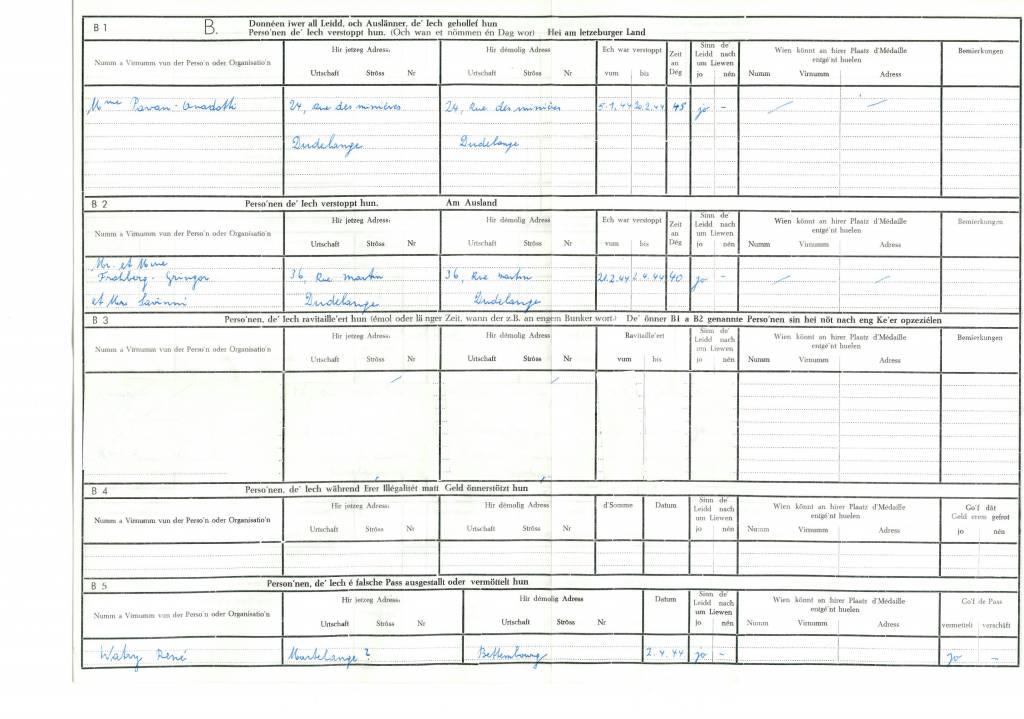 B 1 B. Donnéen iwer all Leidd, och Auslänner, de' Iech gehollef hun
Perso'nen de' Iech verstoppt hun. (Och wan et nömmen én Dag wor) Hei am letzeburger Land
Numm a Virnumm vun der Perso'n oder Organisatio'n
Hir jetzeg Adress:
Urtschaft Ströss Nr
Hir démolig Adress:
Urtschaft Ströss Nr
Ech war verstoppt
vum bis
Zeit
an
Dég
Sinn de'
Leidd nach
um Liewen
jo nén
Wien könnt an hirer Plaatz d'Médaille
entgé'nt huelen
Numm Virnumm Adress
Bemierkungen
Mme Pavan- 24, Rue des minières 24, Rue des minières 5.1.44 20.2.44 45 jo -
Dudelange Dudelange
B 2 Perso'nen de' Iech verstoppt hun. Am Ausland
Numm a Virnumm vun der Perso'n oder Organisatio'n
Hir jetzeg Adress:
Urtschaft Ströss Nr
Hir démolig Adress:
Urtschaft Ströss Nr
Ech war verstoppt
vum bis
Zeit
an
Dég
Sinn de'
Leidd nach
um Liewen
jo nén
Wien könnt an hirer Plaatz d'Médaille
entgé'nt huelen
Numm Virnumm Adress
Bemierkungen
Mr. et Mme
36, Rue martin 36, Rue martin 21.2.44 2.4.44 40 jo -
et Dudelange Dudelange
B 3 Perso'nen, de' Iech ravitaille'ert hun (émol oder länger Zeit, wann der z.B. an engem Bunker wort) De' önner B1 a B2 genannte Perso'nen sin hei nöt nach eng Ke'er opzeziélen
Numm a Virnumm vun der Perso'n oder Organisatio'n
Hir jetzeg Adress:
Urtschaft Ströss Nr
Hir démolig Adress:
Urtschaft Ströss Nr
Ravitaille'ert
vum bis
Sinn de'
Leidd nach
um Liewen
jo nén
Wien könnt an hirer Plaatz d'Médaille
entgé'nt huelen
Numm Virnumm Adress
Bemierkungen
B 4 Perso'nen, de' Iech während Erer Illégalitét matt Geld önnerstötzt hun
Numm a Virnumm vun der Perso'n oder Organisatio'n
Hir jetzeg Adress:
Urtschaft Ströss Nr
Hir démolig Adress:
Urtschaft Ströss Nr
d'Somme
Datum
Sinn de'
Leidd nach
um Liewen
jo nén
Wien könnt an hirer Plaatz d'Médaille
entgé'nt huelen
Numm Virnumm Adress
Go'f dât
Geld erem gefrot
jo nén
B 5 Person'nen, de' Iech é falsche Pass ausgestallt oder vermöttelt hun
Numm a Virnumm vun der Perso'n oder Organisatio'n
Hir jetzeg Adress:
Urtschaft Ströss Nr
Hir démolig Adress
Urtschaft Ströss Nr
Datum
Sinn de'
Leidd nach
um Liewen
jo nén
Wien könnt an hirer Plaatz d'Médaille
entgé'nt huelen
Numm Virnumm Adress
Go'f de Pass
vermettelt verschâft
Watry René Martelange ? Bettembourg 2.4.44 jo - jo -